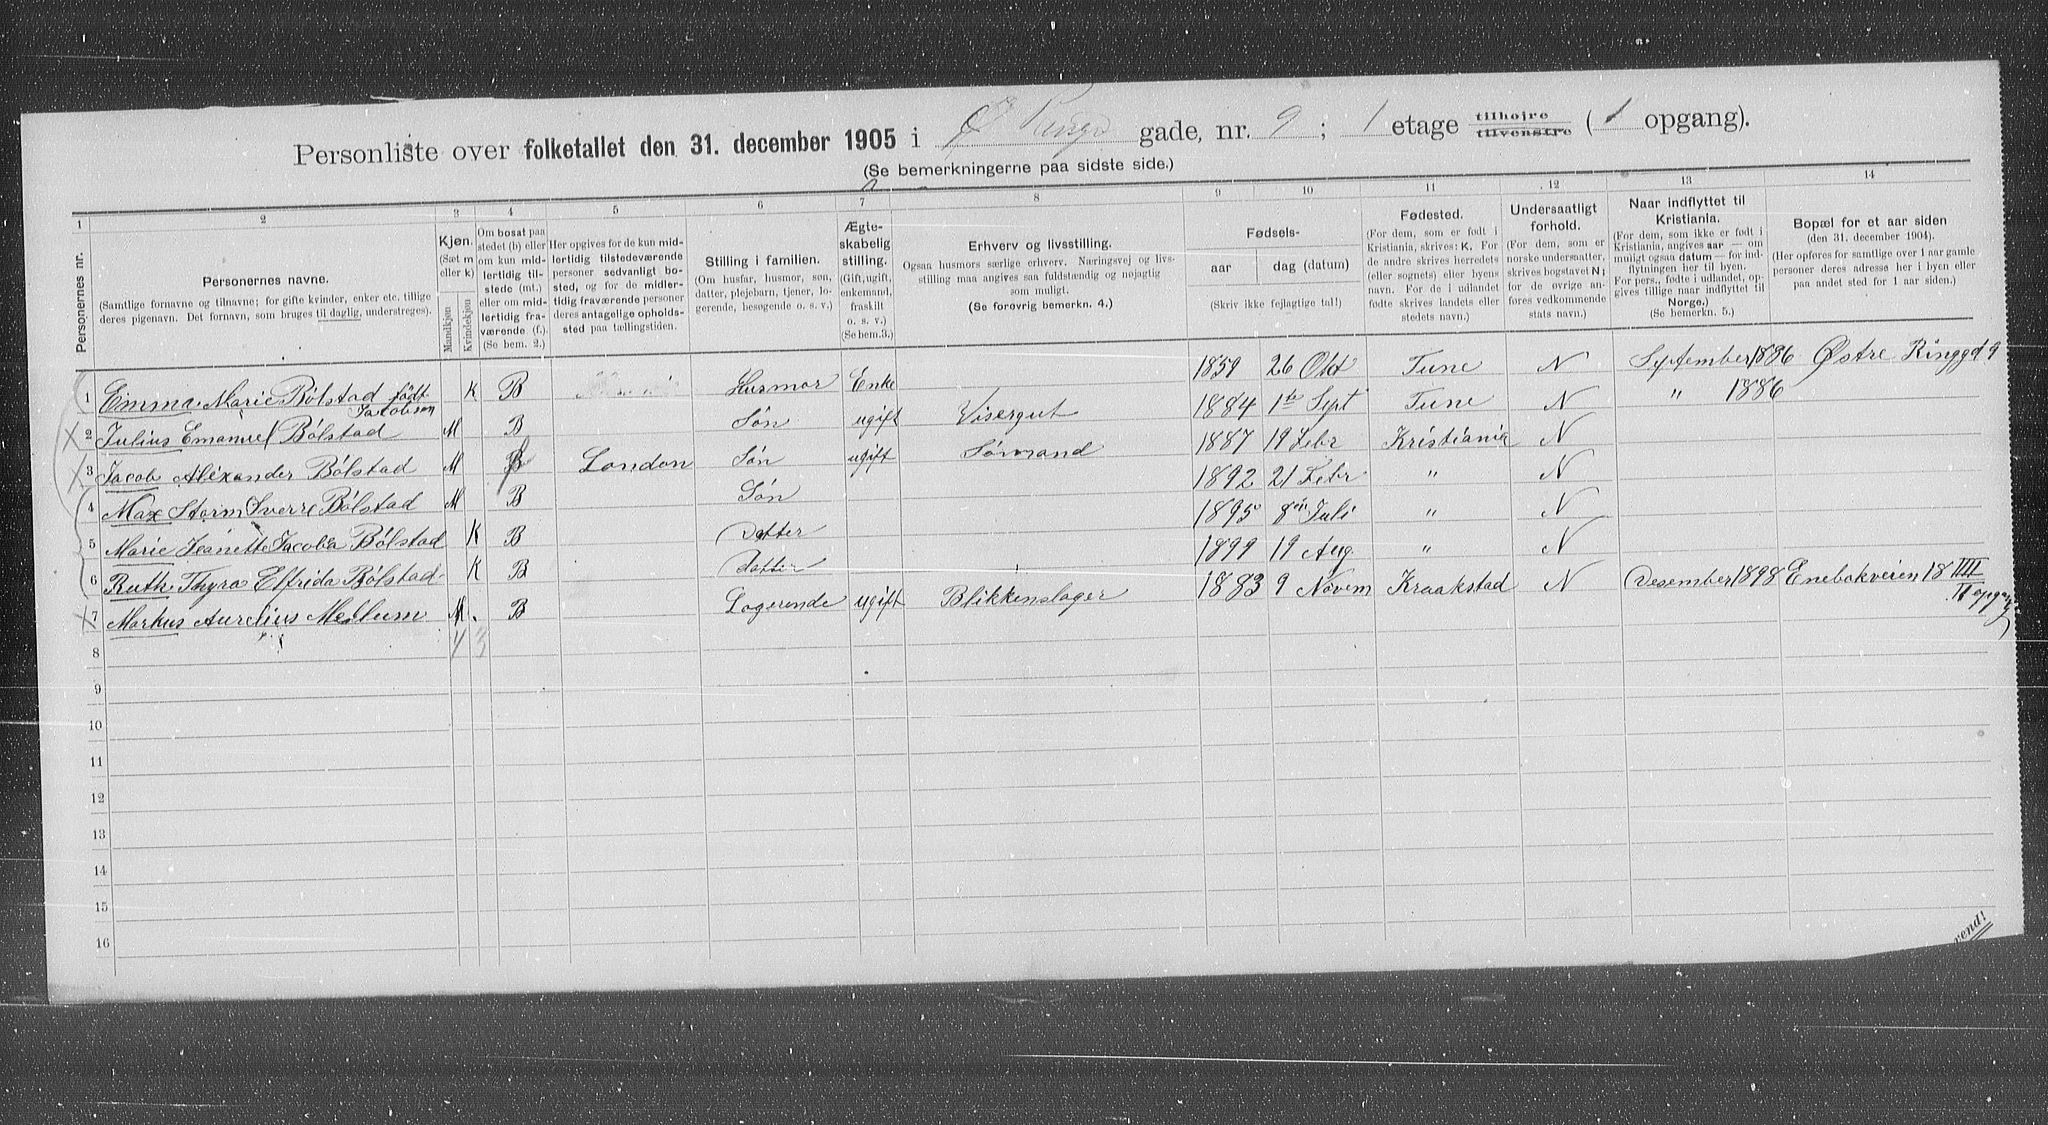 Personliste over folketallet den 31. december 1905 i Ø Rings gade, nr. 9; 1 etage tilhøjre tilvenstre (1 opgang).
(Se bemerkningerne paa sidste side.)
1 2 3 4 5 6 7 8 9 10 11 12 13 14
Personernes nr.
Personernes navne.
(Samtlige fornavne og tilnavne; for gifte kvinder, enker etc. tillige
deres pigenavn. Det fornavn, som bruges til daglig, understreges).
Kjøn.
(Sæt m
eller k)
Mandkjøn
Kvindekjøn
Om bosat paa
stedet (b) eller
om kun mid-
lertidig til-
stede (mt.)
eller om mid-
lertidig fra-
værende (f.).
(Se bem. 2.)
Her opgives for de kun mid-
lertidig tilstedeværende
personer sedvanligt bo-
sted, og for de midler-
tidig fraværende personer
deres antagelige opholds-
sted paa tællingstiden.
Stilling i familien.
(Om husfar, husmor, søn,
datter, plejebarn, tjener, lo-
gerende, besøgende o. s. v.)
Ægte-
skabelig
stilling.
(Gift, ugift,
enkemand,
fraskilt
o. s. v.)
(Se bem.3.)
Erhverv og livsstilling.
Ogsaa husmors særlige erhverv. Næringsvej og livs-
stilling maa angives saa fuldstændig og nøjagtig
som muligt.
(Se forøvrig bemerkn. 4.)
Fødsels-
aar dag (datum)
(Skriv ikke fejlagtige tal!)
Fødested.
(For dem, som er født i
Kristiania, skrives: K. For
de andre skrives herredets
(eller sognets) eller byens
navn. For de i udlandet
fødte skrives landets eller
stedets navn.)
Undersaatligt
forhold.
(For dem, som er
norske undersaatter,
skrives bogstavet N;
for de øvrige an-
føres vedkommende
stats navn.)
Naar indflyttet til
Kristiania.
(For dem, som ikke er født i
Kristiania, angives aar — om
muligt ogsaa datum — for ind-
flytningen her til byen.
For pers., fødte i udlandet, op-
gives tillige naar indflyttet til
Norge.)
(Se bemerkn. 5.)
Bopæl for et aar siden
(den 31. december 1904).
(Her opføres for samtlige over 1 aar gamle
personer deres adresse her i byen eller
paa andet sted for 1 aar siden.)
1 Emma Marie Bølstad født Jacobsen K B Husmor Enke 1859 26 Okt Tune N September 1886 Østre Ringgd 9
2 Julius Emanuel Bølstad M B Søn ugift Visergut 1884 1ste Sept Tune N " 1886
3 Jacob Alexander Bølstad M f London Søn ugift Sømand 1887 19 Febr Kristiania N
4 Max Storm Sverre Bølstad M B Søn 1892 21 Febr " N
5 Marie Jeanette Jacobia Bølstad K B Datter 1895 8de Juli " N
6 Ruth Thyra Elfrida Bølstad K B Datter 1899 19 Aug. " N
7 Markus Aurelius Mellum M. B Logerende ugift Blikkenslager 1883 9 Novem Kraakstad N Desember 1898 Enebakveien 18 IIII
II opgang
8 4 3
9
10
11
12
13
14
15
16
vend!